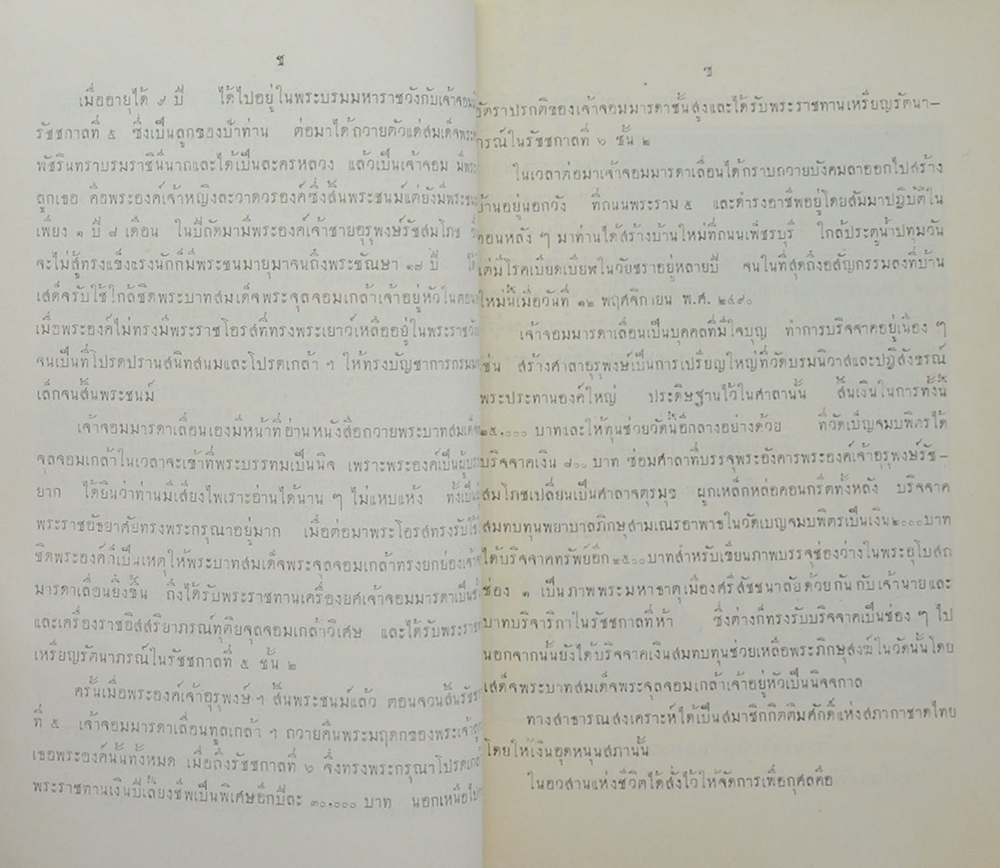 ช
เมื่ออายุได้ ๙ ปี ได้ไปอยู่ในพระบรมมหาราชวังกับเจ้าจอม
รัชชกาลที่ ๕ ซึ่งเป็นลูกของป้าท่าน ต่อมาได้ถวายตัวแด่สมเด็จพระ
พัชรินทราบรมราชินีนาถและได้เป็นละครหลวง แล้วเป็นเจ้าจอม มีพระ
ลูกเธอ คือพระองค์เจ้าหญิงละวาดวรองค์ซึ่งสิ้นพระชนม์แต่ยังมีพระชน
เพียง ๑ ปี ๘ เดือน ในปีถัดมามีพระองค์เจ้าชายอุรุพงษ์รัชสมโภช
จะไม่สู้ทรงแข็งแรงนักก็มีพระชนมายุมาจนถึงพระชัณษา ๑๗ ปี
เสด็จรับใช้ใกล้ชิดพระบาทสมเด็จพระจุลจอมเกล้าเจ้าอยู่หัวในตอน
เมื่อพระองค์ไม่ทรงมีพระราชโอรสที่ทรงพระเยาว์เหลืออยู่ในพระราชวัง
จนเป็นที่โปรดปรานสนิทสนมและโปรดเกล้า ฯ ให้ทรงบัญชาการกรม
เล็กจนสิ้นพระชนม์
เจ้าจอมมารดาเลื่อนเองมีหน้าที่อ่านหนังสือถวายพระบาทสมเด็จ
จุลจอมเกล้าในเวลาจะเข้าที่พระบรรทมเป็นนิจ เพราะพระองค์เป็นผู้บรร
ยาก ได้ยินว่าท่านมีเสียงไพเราะอ่านได้นาน ๆ ไม่แหบแห้ง ทั้งเป็น
พระราชอัธยาศัยทรงพระกรุณาอยู่มาก เมื่อต่อมาพระโอรสทรงรับใช้
ชิดพระองค์ก็เป็นเหตุให้พระบาทสมเด็จพระจุลจอมเกล้าทรงยกย่องเจ้า
มารดาเลื่อนยิ่งขึ้น ถึงได้รับพระราชทานเครื่องยศเจ้าจอมมารดาเป็น
และเครื่องราชอิสสริยาภรณ์ทุติยจุลจอมเกล้าวิเศษ และได้รับพระราช
เหรียญรัตนาภรณ์ในรัชชกาลที่ ๕ ชั้น ๒
ครั้นเมื่อพระองค์เจ้าอุรุพงษ์ ฯ สิ้นพระชนม์แล้ว ตอนจวนสิ้นรัช
ที่ ๕ เจ้าจอมมารดาเลื่อนทูลเกล้า ฯ ถวายคืนพระมฤดกของพระเจ้าลูก
เธอพระองค์นั้นทั้งหมด เมื่อถึงรัชชกาลที่ ๖ จึงทรงพระกรุณาโปรดเกล้
พระราชทานเงินปีเลี้ยงชีพเป็นพิเศษอีกปีละ ๓๐.๐๐๐ บาท นอกเหนือไป
ซ
อัตราปรกติของเจ้าจอมมารดาชั้นสูงและได้รับพระราชทานเหรียญรัตนา-
ภรณ์ในรัชชกาลที่ ๖ ชั้น ๒
ในเวลาต่อมาเจ้าจอมมารดาเลื่อนได้กราบถวายบังคมลาออกไปสร้าง
บ้านอยู่นอกวัง ที่ถนนพระราม ๕ และดำรงอาชีพอยู่โดยสัมมาปฏิบัติใน
ตอนหลัง ๆ มาท่านได้สร้างบ้านใหม่ที่ถนนเพ็ชรบุรี ใกล้ประตูน้ำปทุมวัน
แต่มีโรคเบียดเบียฬในวัยชราอยู่หลายปี จนในที่สุดถึงอสัญกรรมลงที่บ้าน
ใหม่นี้เมื่อวันที่ ๑๒ พฤศจิกเยน พ.ศ. ๒๔๙๐
เจ้าจอมมารดาเลื่อนเป็นบุคคลที่มีใจบุญ ทำการบริจจาคอยู่เนือง ๆ
เช่น สร้างศาลาอุรุพงษ์เป็นการเปรียญใหญ่ที่วัดบรมนิวาสและปฏิสังขรณ์
พระประทานองค์ใหญ่ ประดิษฐานไว้ในศาลานั้น สิ้นเงินในการทั้งนี้
๒๕.๐๐๐ บาทและให้ทุนช่วยวัดนี้อีกลางอย่างด้วย ที่วัดเบ็ญจมบพิตรได้
บริจจาคเงิน ๘๐๐ บาท ซ่อมศาลาที่บรรจุพระอังคารพระองค์เจ้าอุรุพงษ์รัช-
สมโภชเปลี่ยนเป็นศาลาจตุรมุข ผูกเหล็กหล่อคอนกรีตทั้งหลัง บริจจาค
สมทบทุนพยาบาลภิกษุสามเณรอาพาธในวัดเบญจมบพิตรเป็นเงิน๒๐๐๐บาท
ได้บริจจาคทรัพย์อีก ๒๕๐๐ บาทสำหรับเขียนภาพบรรจุช่องว่างในพระอุโบสถ
ช่อง ๑ เป็นภาพพระมหาธาตุเมืองศรีสัชชนาลัยด้วยกันกับเจ้านายและ
บาทบริจาริกาในรัชชกาลที่ห้า ซึ่งต่างก็ทรงรับบริจจาคเป็นช่อง ๆ ไป
นอกจากนั้นยังได้บริจจาคเงินสมทบทุนช่วยเหลือพระภิกษุสงฆ์ในวัดนั้นโดย
เสด็จพระบาทสมเด็จพระจุลจอมเกล้าเจ้าอยู่หัวเป็นนิจจกาล
ทางสาธารณสงเคราะห์ได้เป็นสมาชิกกิตติมศักดิ์แห่งสภากาชาดไทย
โดยให้เงินอุดหนุนสภานั้น
ในอวสานแห่งชีวิตได้สั่งไว้ให้จัดการเพื่อกุศลคือ